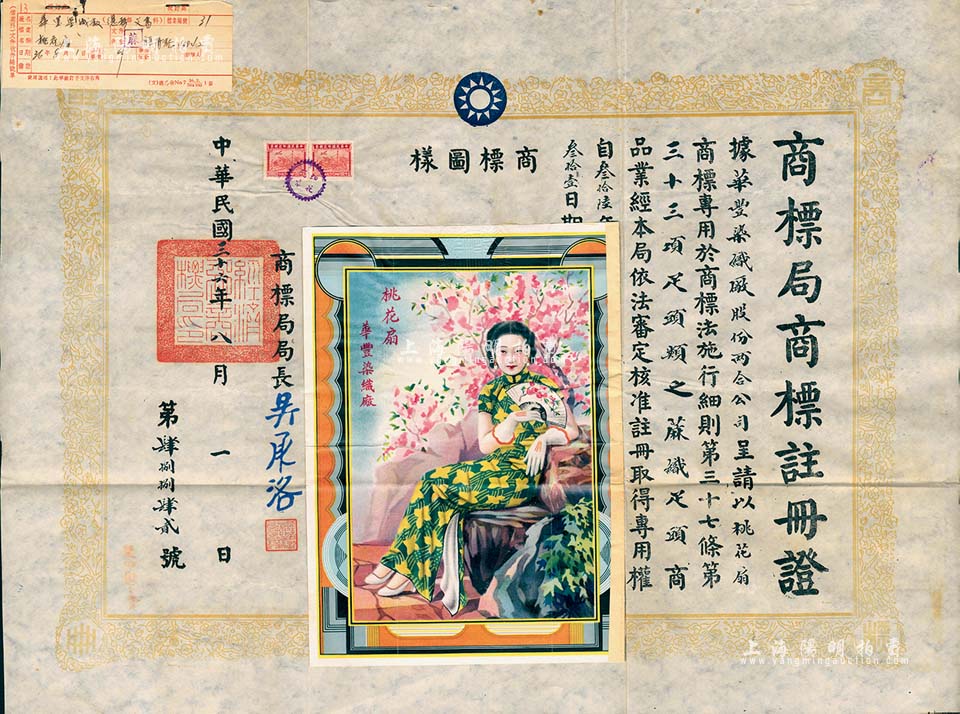 商標局商標註冊證
據華豐染織廠股份兩合公司呈請以桃花扇
商標專用於商標法施行細則第三十七條第
三十三項疋頭類之蔴織疋頭商
品業經本局依法審定核准註冊取得專用權
自叁拾陸年
叁拾壹日期
商標圖樣
桃花扇
華豐染織廠
商標局局長
中華民國三十六年八月一日
第肆捌捌肆貳號
31
上海陽明拍賣
www.yangmingauction.com